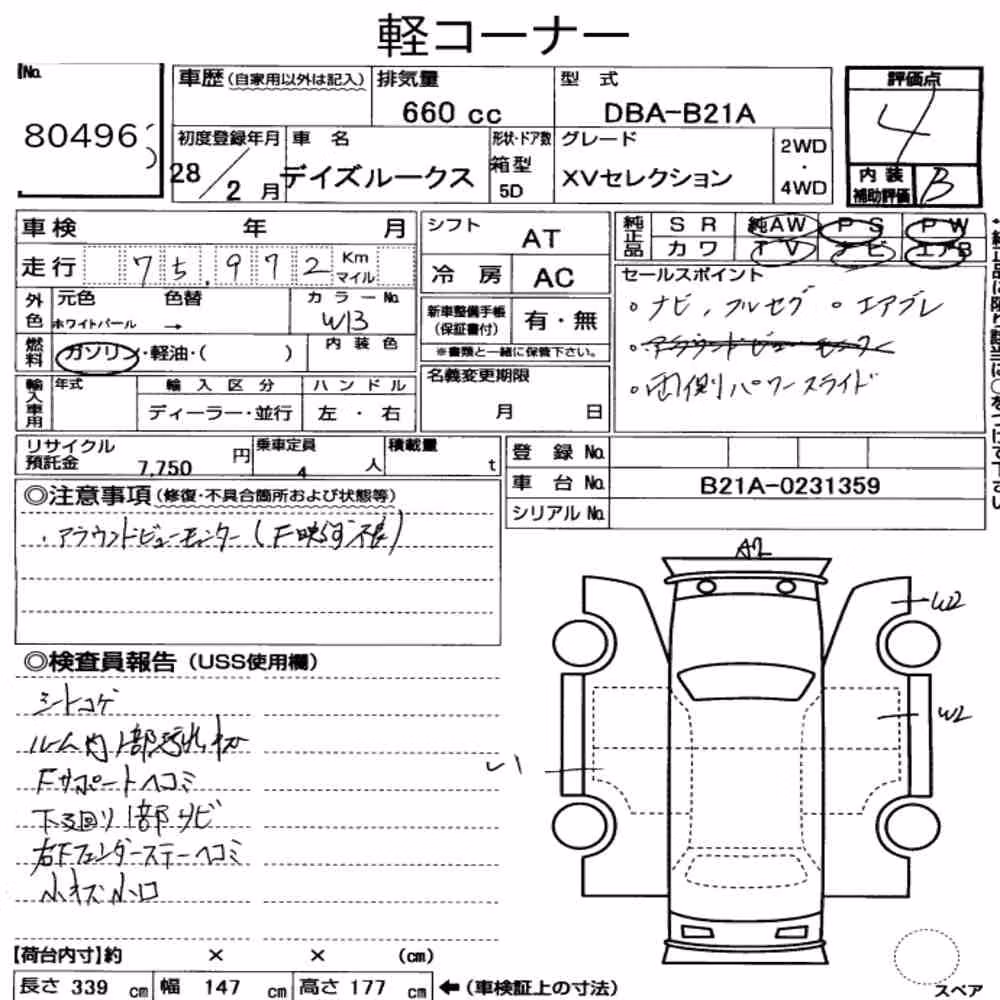 軽コーナー
No.
80496
車歴(自家用以外は記入)
排気量
660 cc
型 式
DBA-B21A
評価点
4
初度登録年月
28/2 月
車 名
デイズルークス
形状・ドア数
箱型
5D
グレード
XVセレクション
2WD
・
4WD
内 装
補助評価
B
車検 年 月
走行 75,972 Km
マイル
シフト
AT
冷 房
AC
純正品
S R 純AW P S P W
カワ T V ナビ エアB
外色
元色 色替
ホワイトパール →
カラーNo.
W13
燃料
ガソリン・軽油・( )
内 装 色
新車整備手帳
(保証書付)
有・無
※書類と一緒に保管下さい。
セールスポイント
。ナビ、フルセグ 。エアブレ
。アラウンドビューモニター
。両側パワースライド
輸入車用
年式
輸 入 区 分
ディーラー・並行
ハ ン ド ル
左 ・ 右
名義変更期限
月 日
リサイクル
預託金
7,750 円
乗車定員
4 人
積載量
t
登 録 No.
車 台 No.
B21A-0231359
シリアル No.
◎注意事項(修復・不具合箇所および状態等)
・アラウンドビューモニター(F映らず不良)
◎検査員報告(USS使用欄)
シートコゲ
ルーム内1部汚れ
Fサポートヘコミ
下回り1部サビ
右Fフェンダーステーヘコミ
小キズ小凹
A2
W2
W2
【荷台内寸】約 × × (cm)
長さ 339 cm 幅 147 cm 高さ 177 cm ←(車検証上の寸法)
スペア